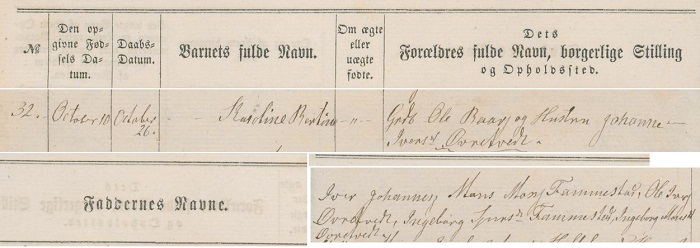 №
Den op-
givne Fød-
sels Da-
tum.
Daabs-
Datum.
Barnets fulde Navn.
Om ægte
eller
uægte
fødte.
Dets
Forældres fulde Navn, borgerlige Stilling
og Opholdssted.
32.
October 10
October
26.
Karoline Bertine
Ole Baarj og Hustru Johanne
Iversd Øvretvedt.
Faddernes Navne.
Iver Johannes, Mons Monsj Fammestad, Ole Iverj
Øvretvedt, Ingeborg Iversd Fammestad, Ingeborg
Øvretvedt